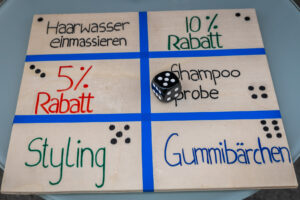 Haarwasser
einmassieren
10%
Rabatt
5%
Rabatt
Shampoo
probe
Styling
Gummibärchen